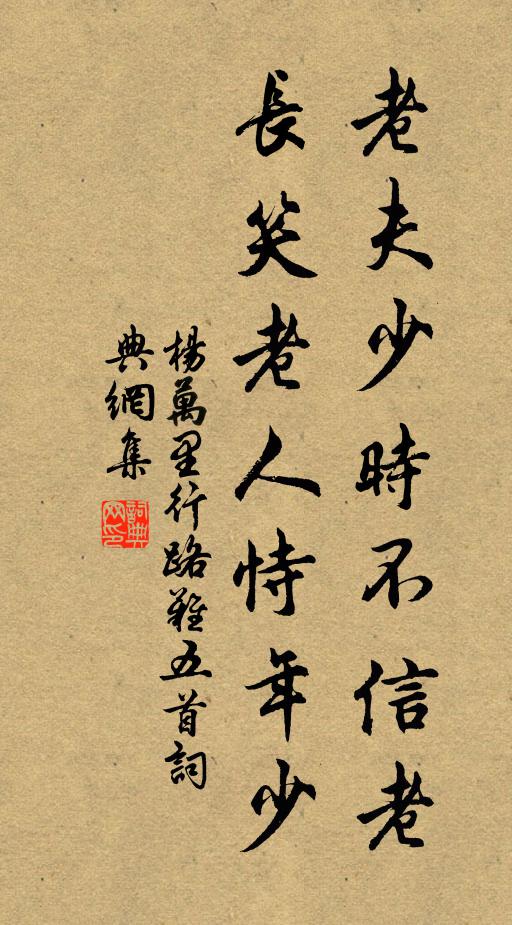 老夫少時不信老
長笑老人恃年少
楊萬里行路難五首詞
典網集
詞典
網印